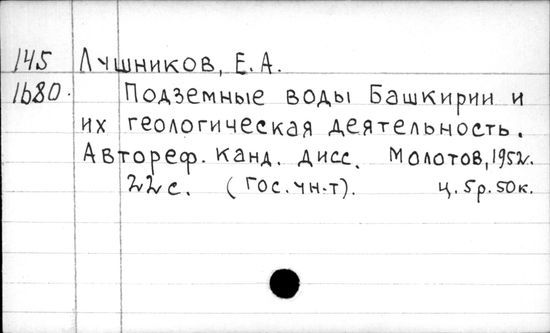 145 Лушников, Е.А.
1680. Подземные воды Башкирии и
их геологическая деятельность.
Автореф. канд. дисс. Молотов, 1952.
22 с. (Гос. ун-т). ц. 5р. 50к.